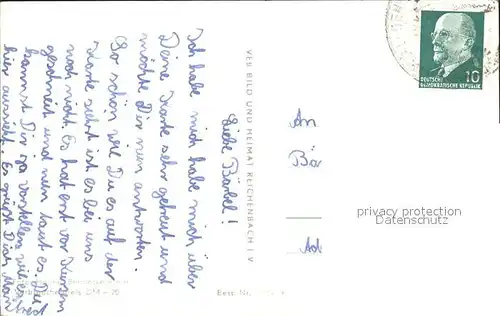 Liebe Bärbel!
Ich habe mich habe mich über
Deine Karte sehr gefreut und
möchte Dir nun antworten.
So schön wie Du es auf der
Karte siehst ist es bei uns
noch nicht. Es hat erst vor kurzem
geschneit und nun taut es. Du
kannst Dir ja vorstellen wie es
hier aussieht. Es grüßt Dich
VEB BILD UND HEIMAT REICHENBACH I V
An
Bär
Ad
DEUTSCHE
DEMOKRATISCHE REPUBLIK
10
privacy protection
Datenschutz
Best.-Nr.